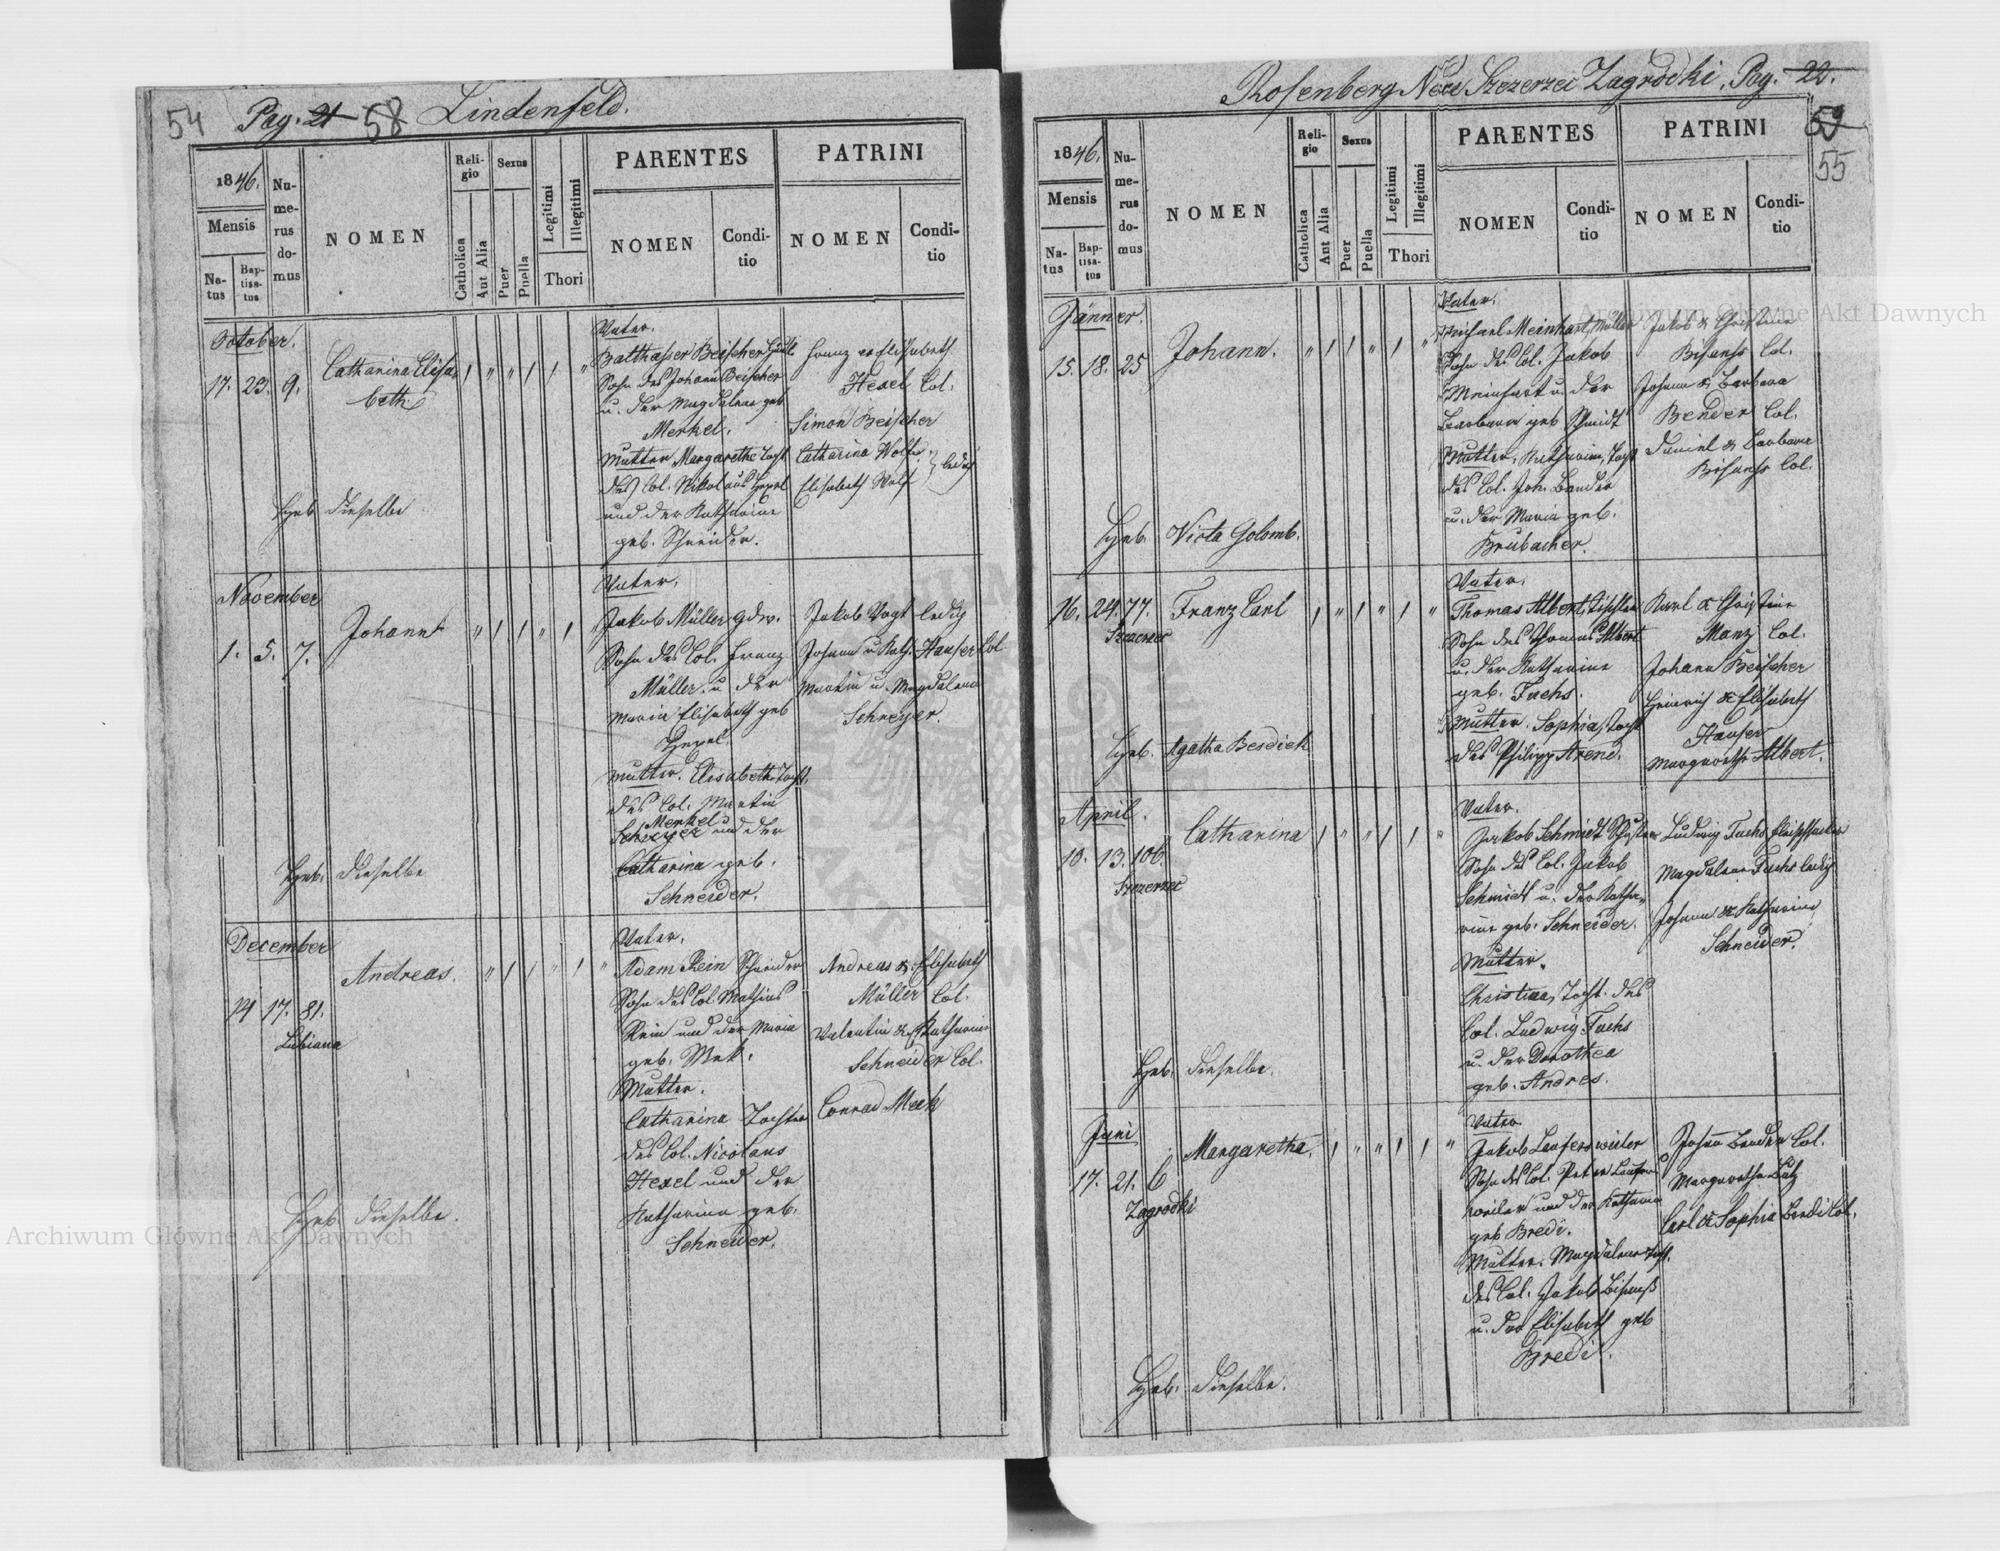 54 Pag. 21 58 Lindenfeld.
1846.
Mensis
Natus
Baptisatus
Numerus domus
NOMEN
Religio
Catholica
Aut Alia
Sexus
Puer
Puella
Legitimi
Illegitimi
Thori
PARENTES
NOMEN
Conditio
PATRINI
NOMEN
Conditio
October.
17. 23. 9.
Catharina Elisa-
beth
Vater.
Balthaser Beischer
Sohn des Johann Beischer
u. der Magdalena geb
Merkel.
Mutter Margarethe Tocht
des Col. Nikolaus Hexel
und der Katharina
geb. Schneider.
Franz et Elisabeth
Hexel Col.
Simon Beischer
Catharina Wolf
Elisabeth Wolf
ledig
Heb. dieselbe
November
1. 5. 7.
Johann
Vater.
Jakob Müller Gdw.
Sohn des Col. Franz
Müller u der
Maria Elisabeth geb
Hexel.
Mutter. Elisabeth Tocht.
des Col. Martin
Merkel u
Schreyer und der
Catharina geb.
Schneider.
Jakob Vogt ledig
Johann u Kath. Hauser Col
Martin u. Magdalena
Schreyer.
Heb. dieselbe
December
14 17. 81.
Lubiana
Andreas.
Vater.
Adam Rein Schneider
Sohn des Col Mathias
Rein und der Maria
geb.
Mutter.
Catharina Tochter
des Col. Nicolaus
Hexel und der
Katharina geb.
Schneider.
Andreas & Elisabeth
Müller Col.
Valentin & Katharina
Schneider Col.
Conrad Mech
Heb. dieselbe.
Rosenberg Neu Szczerzec Zagrodki, Pag. 22.
59
55
1846.
Mensis
Natus
Baptisatus
Numerus domus
NOMEN
Religio
Catholica
Aut Alia
Sexus
Puer
Puella
Legitimi
Illegitimi
Thori
PARENTES
NOMEN
Conditio
PATRINI
NOMEN
Conditio
Jänner.
15. 18. 25
Johann.
Vater.
Michael Meinhart, Müller
Sohn des Col. Jakob
Meinhart u. der
Barbara geb Schmidt
Mutter. Katharina, Tocht
des Col. Joh. Bender
u. der Maria geb.
Brubacher.
Jakob & Christine
Bisanz Col.
Johann & Barbara
Bender Col.
Daniel & Barbara
Bisanz Col.
Heb. Victa Golomb.
16. 24. 77.
Szczerzec
Franz Carl
Vater.
Thomas Albert, Tischler
Sohn des Thomas Albert
u. der Katharina
geb. Fuchs.
Mutter. Sophia, Tocht
des Philipp Arend.
Karl & Christine
Manz Col.
Johann Beischer
Heinrich & Elisabeth
Hauser
Margarethe Albert.
Heb. Agatha Berdich
April.
10. 13. 106
Szczerzec
Catharina
Vater.
Jakob Schmidt Schuster
Sohn des Col. Jakob
Schmidt u. der Katha-
rina geb. Schneider.
Mutter.
Christina, Tocht. des
Col. Ludwig Fuchs
u. der Dorothea
geb. Andres.
Ludwig Fuchs Fleischhacker
Magdalena Fuchs ledig
Johann & Katharina
Schneider.
Heb. dieselbe.
Juni
17. 21. 6
Zagrodki
Margaretha.
Vater.
Jakob Laufersweiler
Sohn des Col. Peter Laufers-
weiler und der Katharina
geb Bredi.
Mutter. Magdalena Tocht.
des Col. Jakob Bisanz
u. der Elisabeth geb
Bredi.
Johann Bender Col.
Margaretha Lutz
Carl & Sophia Bredi Col.
Heb. dieselbe.
Archiwum Główne Akt Dawnych
Archiwum Główne Akt Dawnych